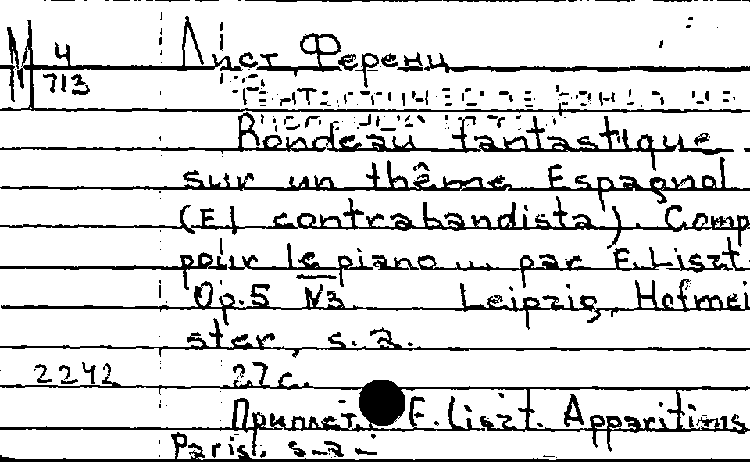 М 4 Лист, Ференц
713
Rondeau fantastique
sur un thême Espagnol
(El contrabandista). Comp
pour le piano ... par F. Liszt.
Op.5 N3. Leipzig, Hofmei
ster, s.a.
2242 27 с.
Приплет.: F. Liszt. Apparitions
Paris, s.a.